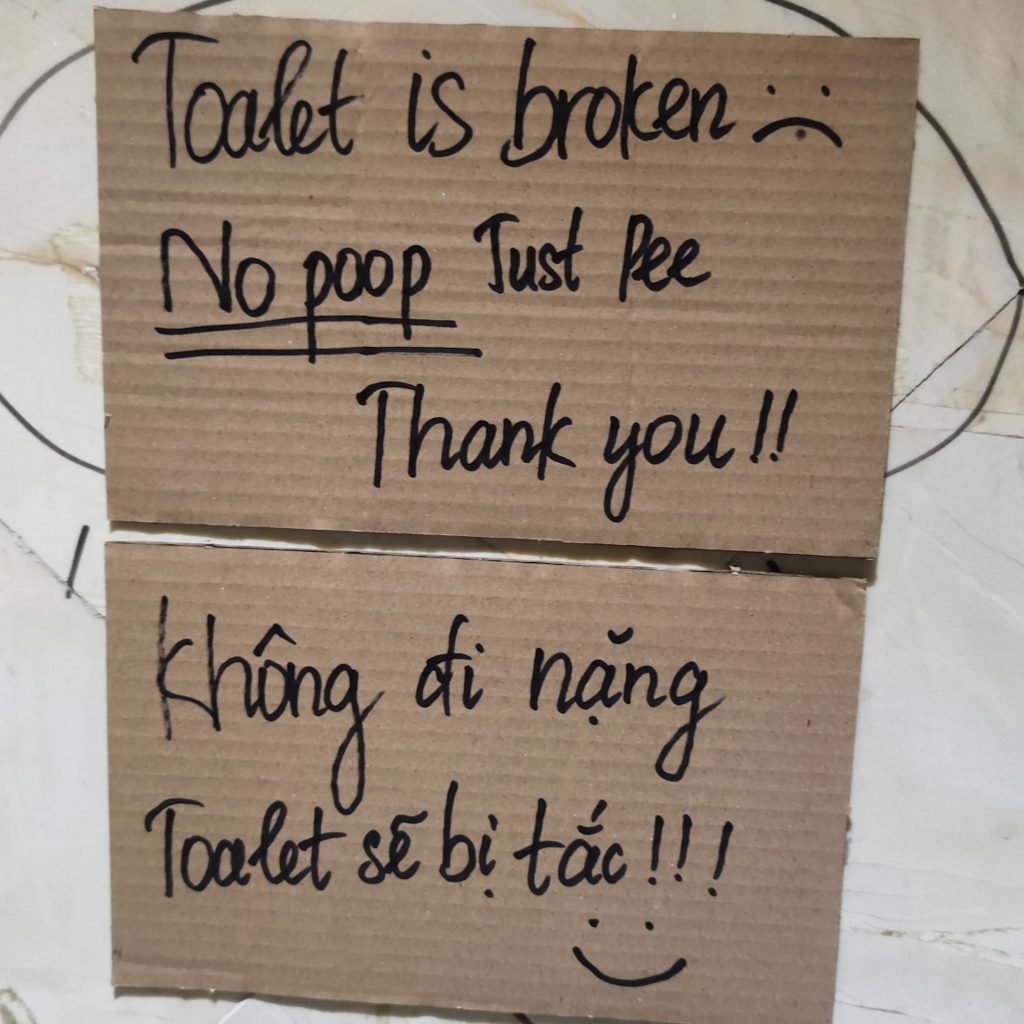 Toalet is broken
No poop Just Pee
Thank you!!
Không đi nặng
Toalet sẽ bị tắc!!!